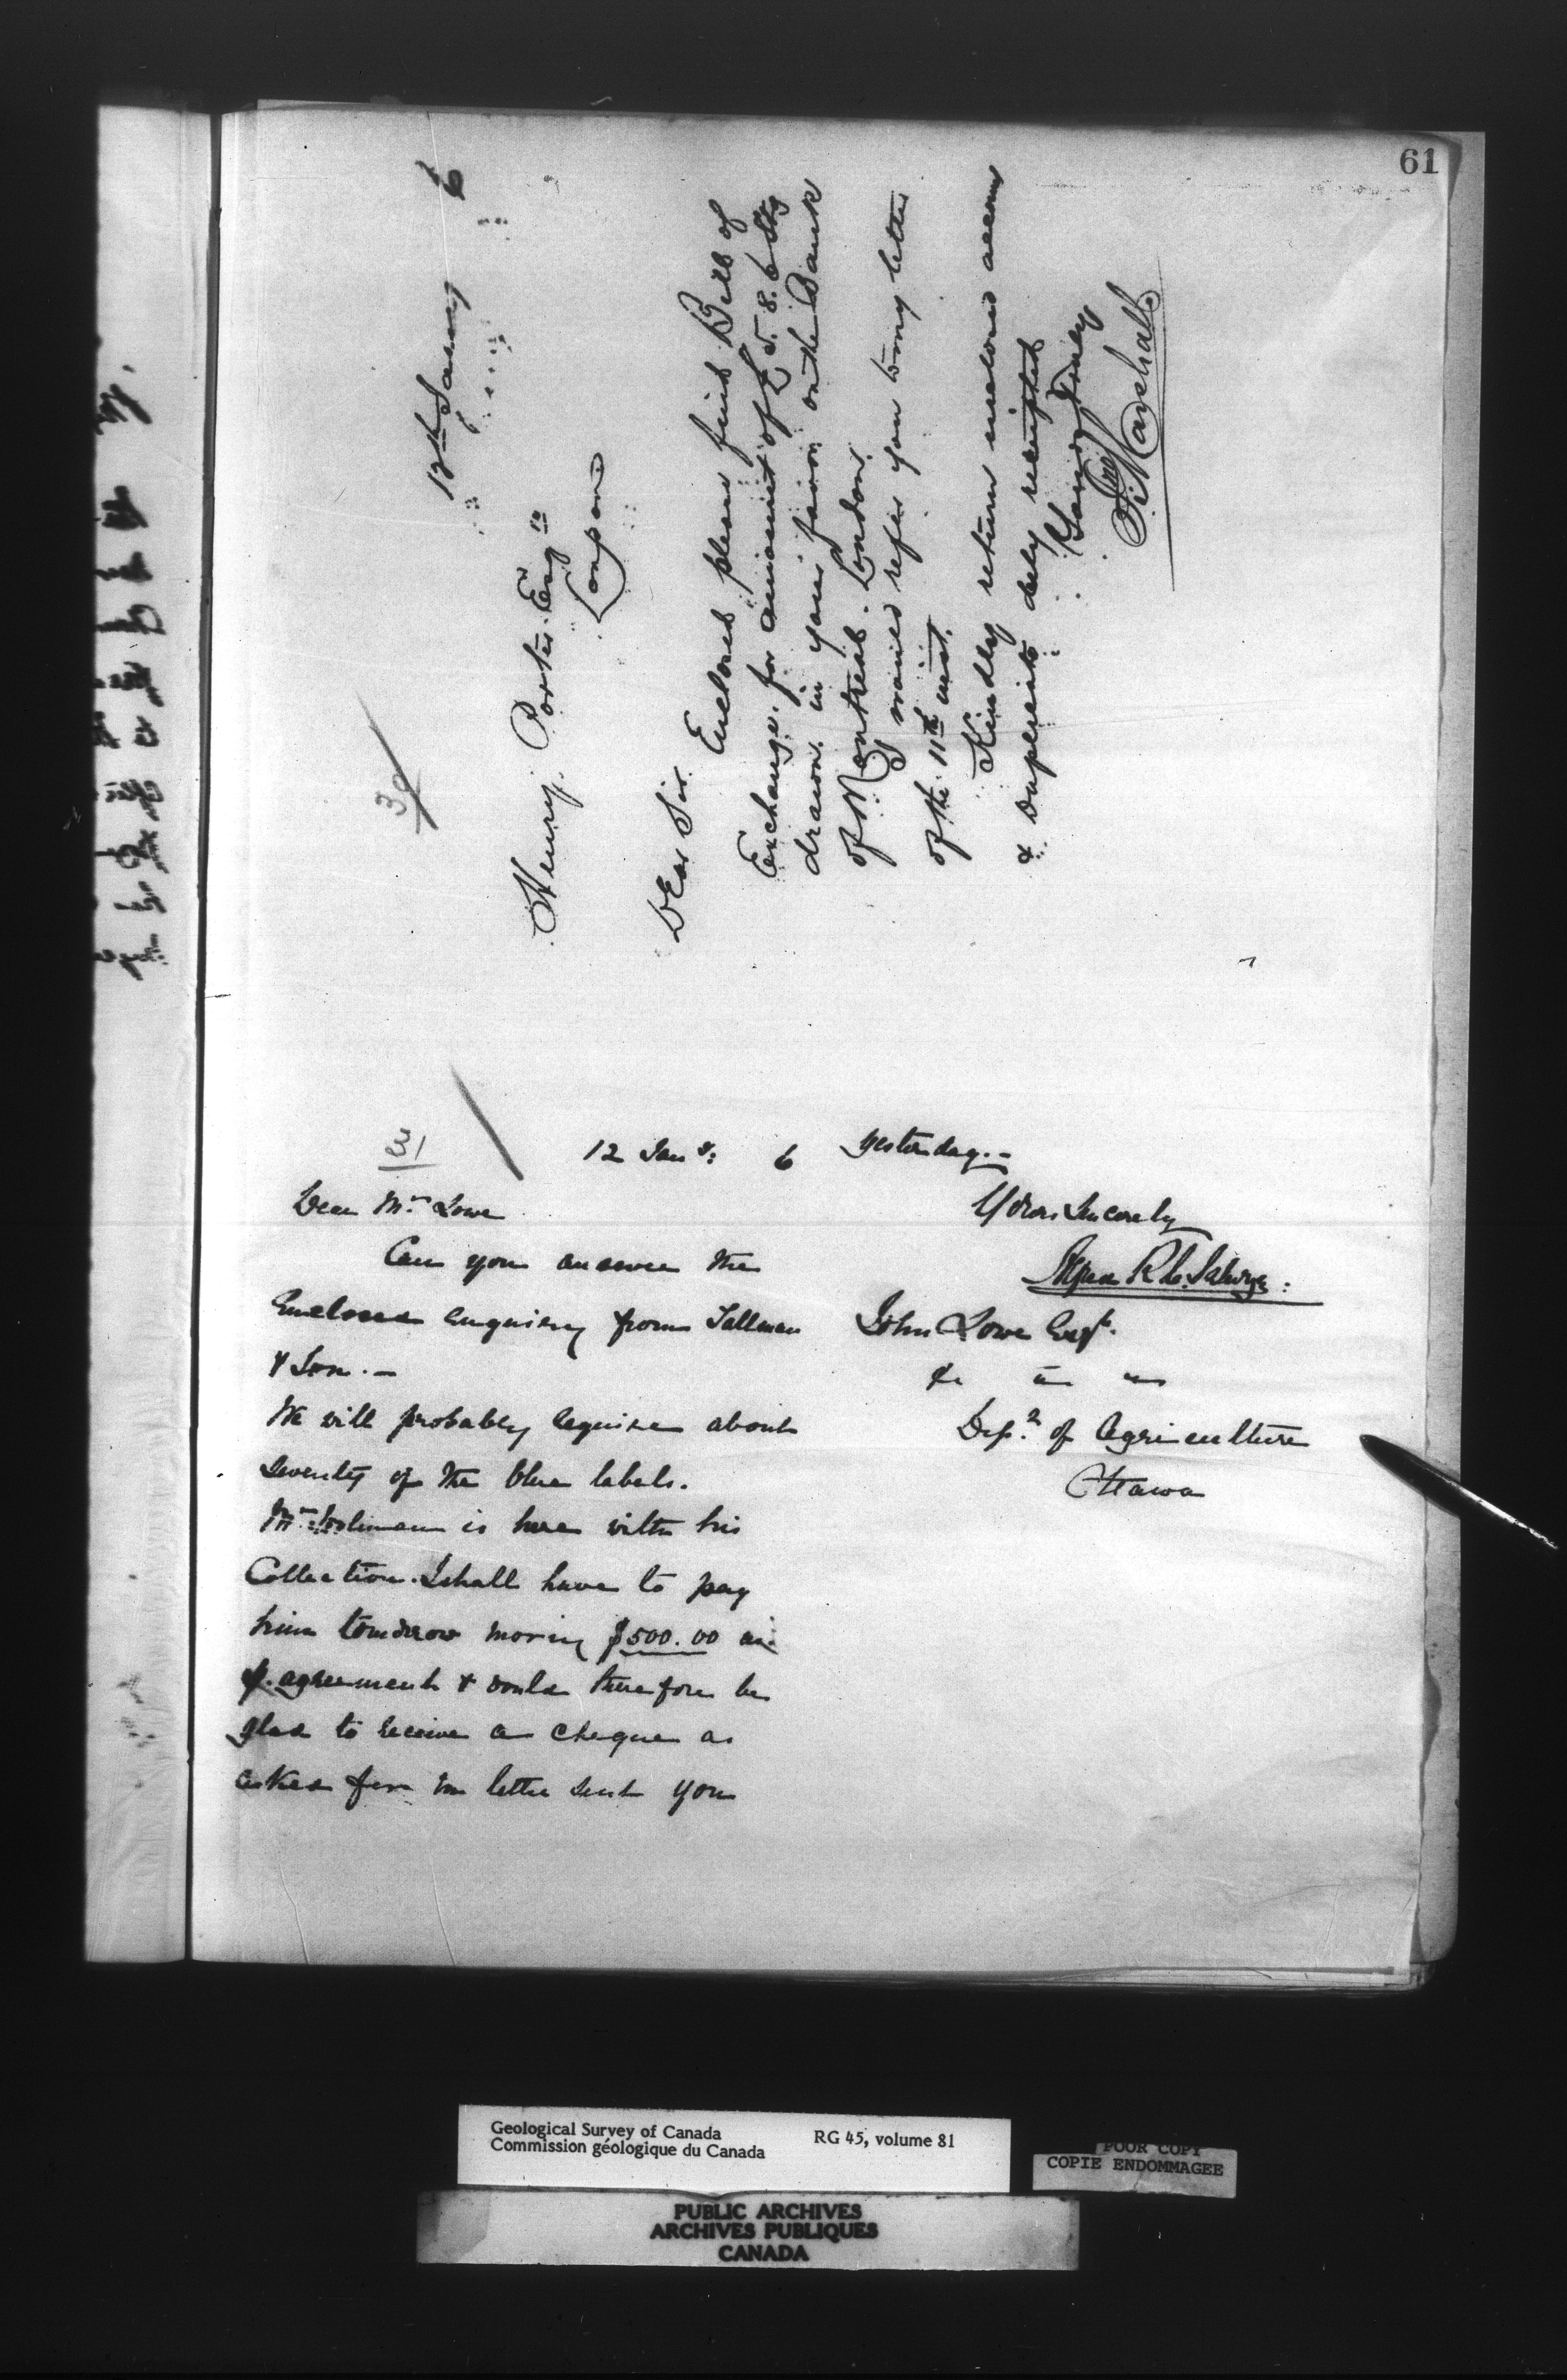 61
30
12th January 6
Henry Porter Esqre
London
Dear Sir
Enclosed please find Bill of
Exchange for amount of £5.8.6 Stg
drawn in your favor on the Bank
of Montreal. London.
refer you to my letter
of the 11th inst.
Kindly return inclosed accom
& Duplicate duly receipted
Yours Truly
Marshall
31
12 Jany. 6
Dear Mr Lowe
Can you answer the
Enclosed enquiery from Tallman
& Son. —
We will probably require about
seventy of the blue labels.
Mr is here with his
Collection. I shall have to pay
him tomorrow morning $500.00 as
p. agreement & would therefore be
glad to receive a cheque as
asked for in letter sent you
yesterday. —
Yours Sincerely
Alfred R. C. Selwyn
John Lowe Esqr.
&c
Dept. of Agriculture
Ottawa
Geological Survey of Canada
Commission géologique du Canada
RG 45, volume 81
POOR COPY
COPIE ENDOMMAGEE
PUBLIC ARCHIVES
ARCHIVES PUBLIQUES
CANADA